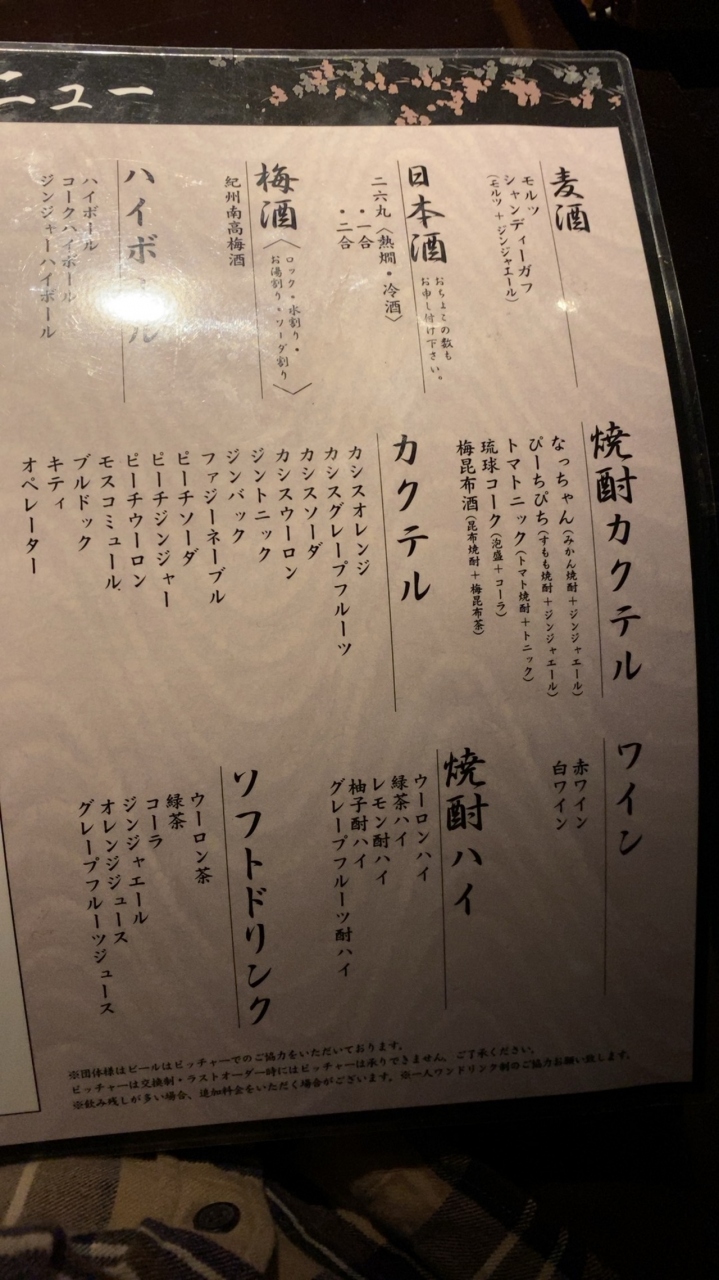 ニュー
麦酒
モルツ
シャンディーガフ
(モルツ+ジンジャエール)
日本酒
おちょこの数も
お申し付け下さい。
二六丸〈熱燗・冷酒〉
・一合
・二合
梅酒
〈ロック・水割り・
お湯割り・ソーダ割り〉
紀州南高梅酒
ハイボール
ハイボール
コークハイボール
ジンジャーハイボール
焼酎カクテル
なっちゃん(みかん焼酎+ジンジャエール)
ぴーちぴち(すもも焼酎+ジンジャエール)
トマトニック(トマト焼酎+トニック)
琉球コーク(泡盛+コーラ)
梅昆布酒(昆布焼酎+梅昆布茶)
カクテル
カシスオレンジ
カシスグレープフルーツ
カシスソーダ
カシスウーロン
ジントニック
ジンバック
ファジーネーブル
ピーチソーダ
ピーチジンジャー
ピーチウーロン
モスコミュール
ブルドック
キティ
オペレーター
ワイン
赤ワイン
白ワイン
焼酎ハイ
ウーロンハイ
緑茶ハイ
レモン酎ハイ
柚子酎ハイ
グレープフルーツ酎ハイ
ソフトドリンク
ウーロン茶
緑茶
コーラ
ジンジャエール
オレンジジュース
グレープフルーツジュース
※団体様はビールはピッチャーでのご協力をいただいております。
ピッチャーは交換制・ラストオーダー時にはピッチャーは承りできません、ご了承ください。
※飲み残しが多い場合、追加料金をいただく場合がございます。※一人ワンドリンク制のご協力お願い致します。